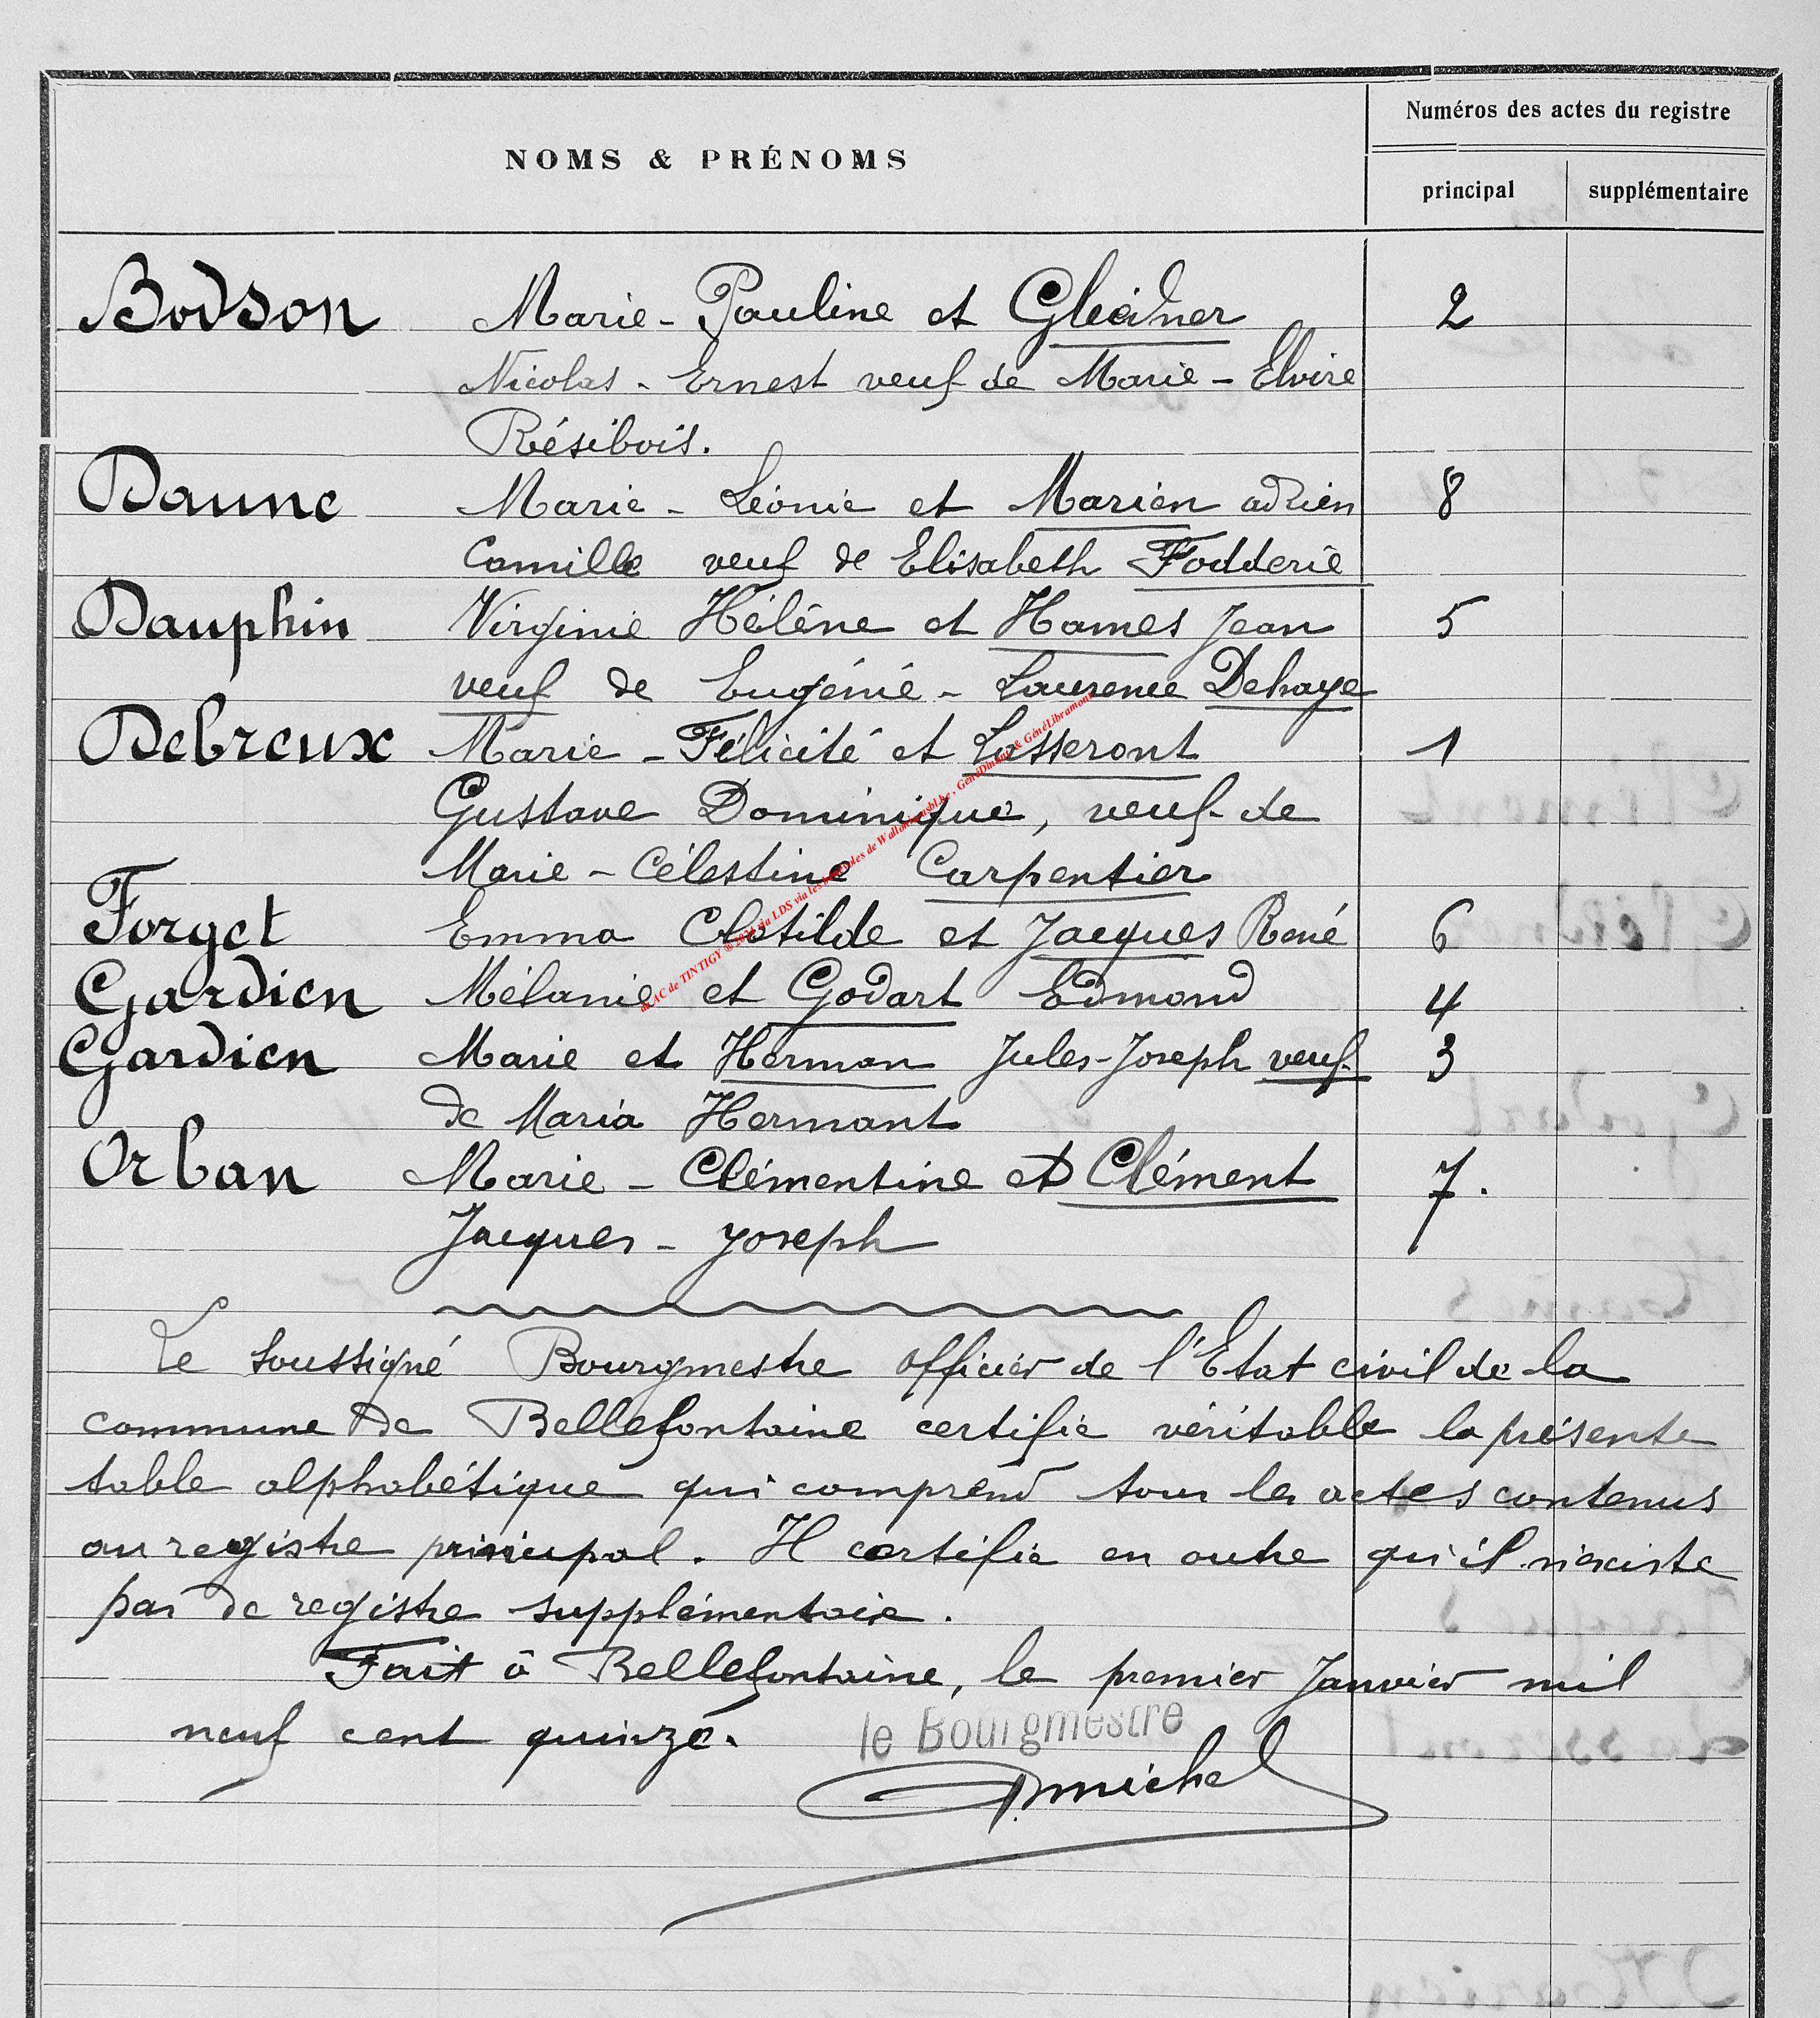 Numéros des actes du registre
NOMS & PRÉNOMS
principal supplémentaire
Bodson Marie - Pauline et Gleidner 2
Nicolas - Ernest veuf de Marie - Elvire
Résibois.
Daune Marie - Léonie et Marien adrien 8
Camille veuf de Elisabeth Fodderie
Dauphin Virginie Hélène et Hames Jean 5
veuf de Eugénie - Laurence Dehaye
Debreux Marie - Félicité et Lasseront 1
Gustave Dominique, veuf de
Marie - Célestine Carpentier
Forget Emma Clotilde et Jacques René 6
Gardien Mélanie et Godart Edmond 4
Gardien Marie et Herman Jules-Joseph veuf 3
de Maria Hermant
Orban Marie - Clémentine et Clément 7.
Jacques - Joseph
Le soussigné Bourgmestre officier de l'Etat civil de la
commune de Bellefontaine certifie véritable la présente
table alphabétique qui comprend tous les actes contenus
au registre principal. Il certifie en outre qu'il n'existe
pas de registre supplémentaire.
Fait à Bellefontaine, le premier Janvier mil
neuf cent quinze.
le Bourgmestre
michel
AC de TINTIGY via LDS via les bénévoles de